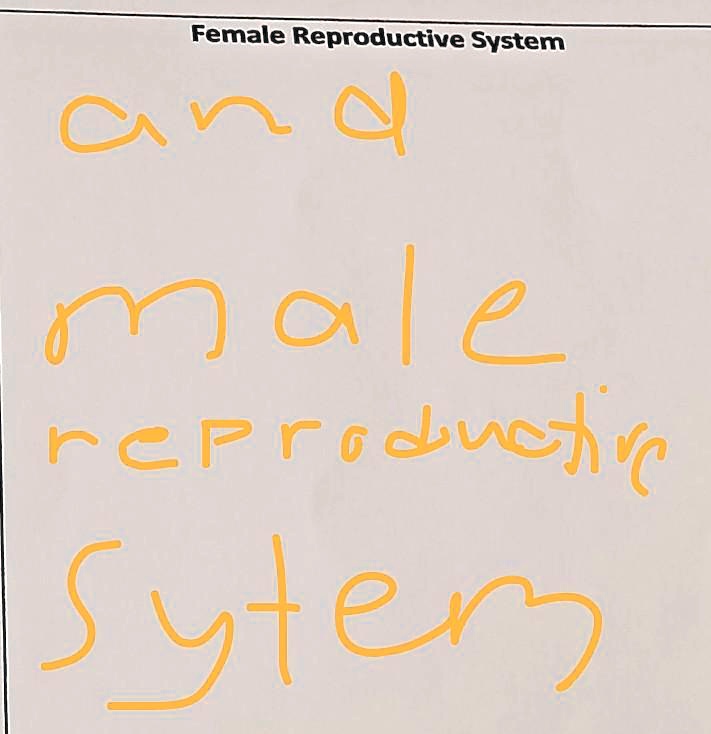 Female Reproductive System
and
male
reproductive
Sytem